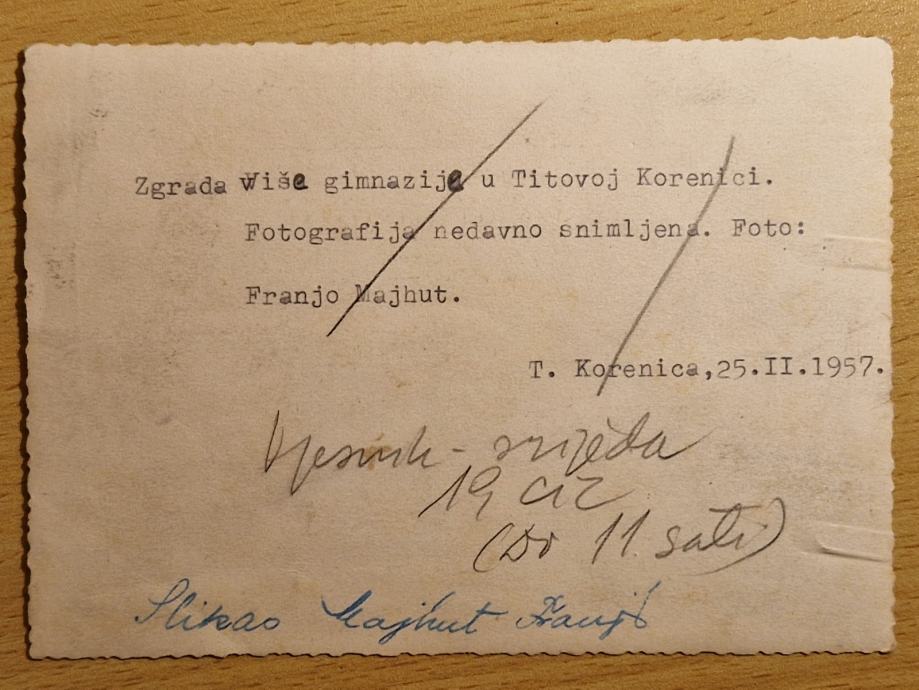 Zgrada Više gimnazije u Titovoj Korenici.
Fotografija nedavno snimljena. Foto:
Franjo Majhut.
T. Korenica,25.II.1957.
Vjesnik - srijeda
19 cic
(Do 11 sati)
Slikao Majhut Franjo